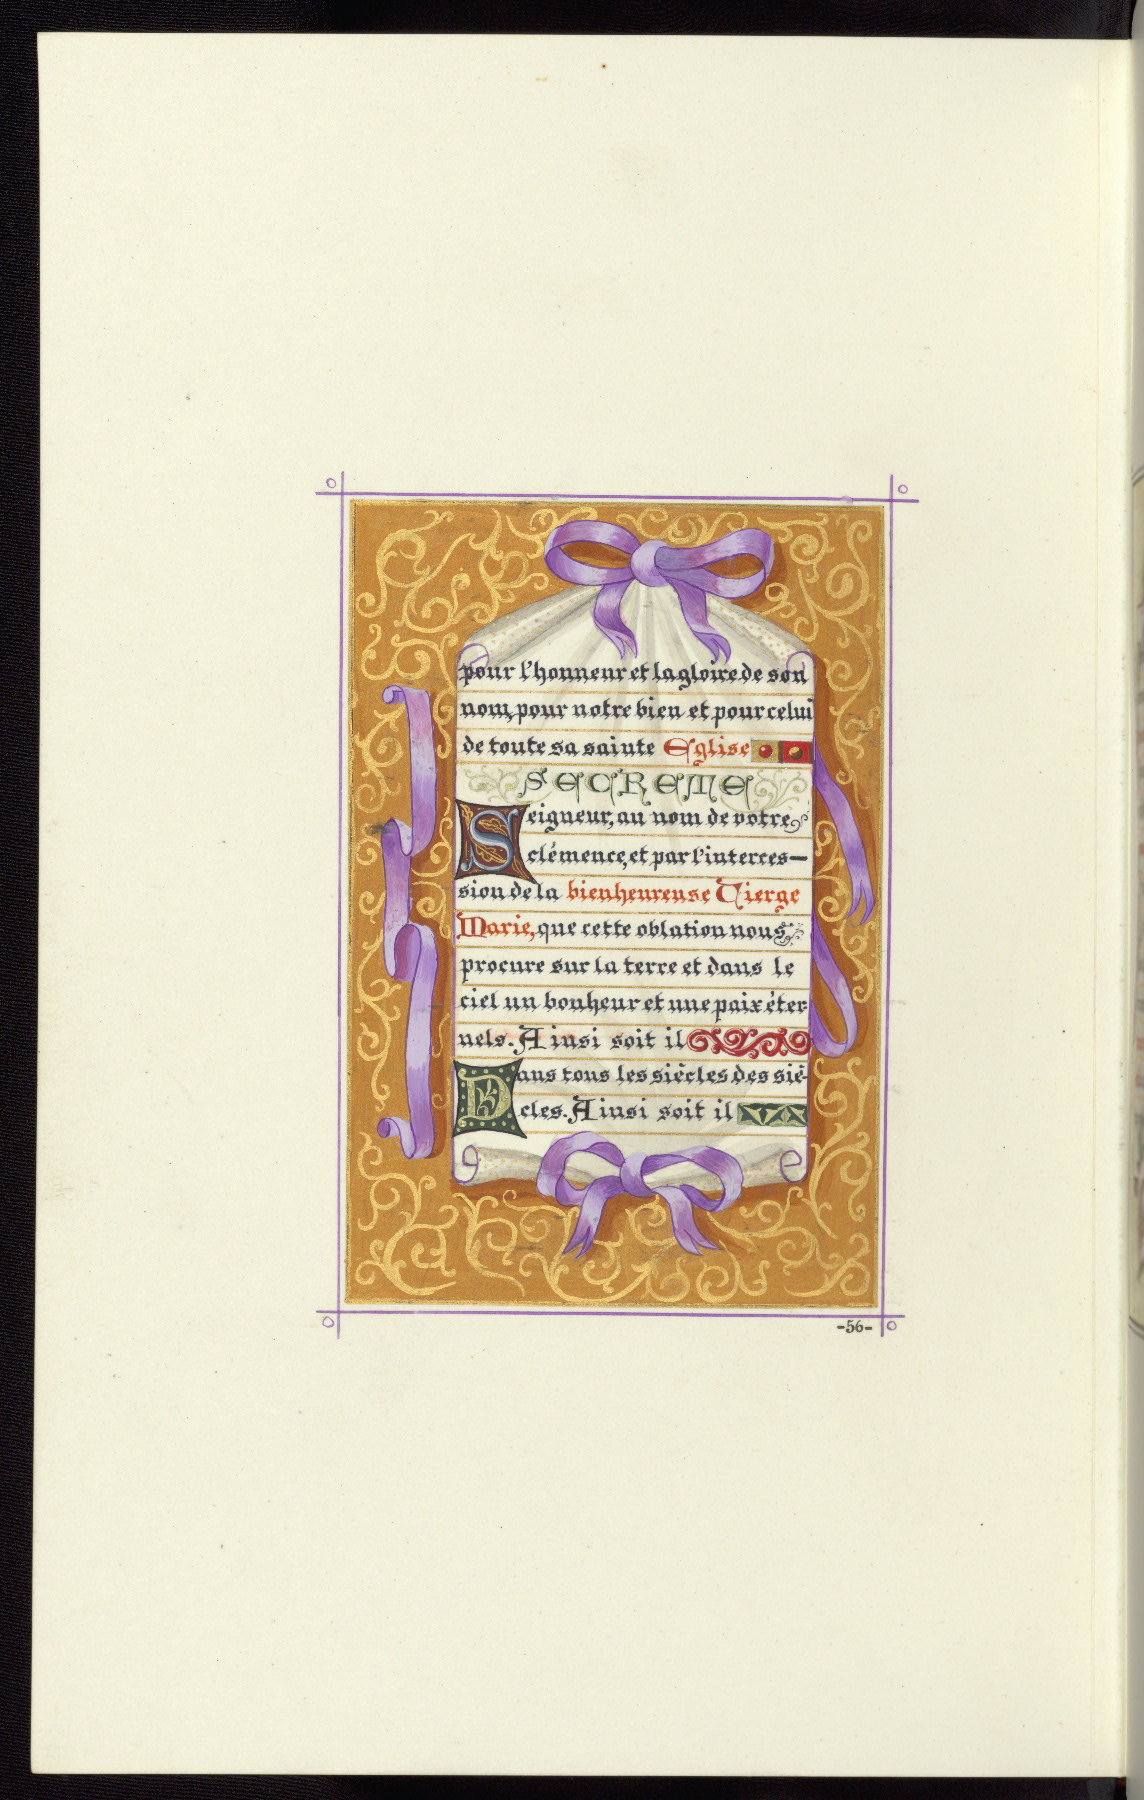 pour l'honneur et la gloire de son
nom, pour notre bien et pour celui
de toute sa sainte Eglise
SECRETE
Seigneur, au nom de votre
clémence, et par l'interces-
sion de la bienheureuse Vierge
Marie, que cette oblation nous
procure sur la terre et dans le
ciel un bonheur et une paix éter-
nels. Ainsi soit il
Dans tous les siècles des siè-
cles. Ainsi soit il
-56-